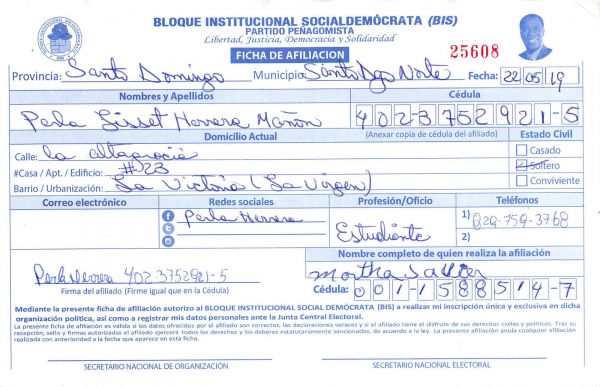 BLOQUE INSTITUCIONAL SOCIALDEMÓCRATA (BIS)
PARTIDO PEÑAGOMISTA
Libertad, Justicia, Democracia y Solidaridad
FICHA DE AFILIACION
25608
Provincia: Santo Domingo Municipio: Santo Dgo Norte Fecha: 22 05 19
Nombres y Apellidos Cédula
Perla Lisset Herrera Mañón 402-3752921-5
Domicilio Actual (Anexar copia de cédula del afiliado) Estado Civil
Calle: la altagracia Casado
#Casa / Apt. / Edificio: #23 Soltero
Barrio / Urbanización: La Victoria (La Virgen) Conviviente
Correo electrónico Redes sociales Profesión/Oficio Teléfonos
Perla Herrera Estudiante 1) 829-759-3768
2)
Nombre completo de quien realiza la afiliación
Perla Herrera 402 3752921-5 Martha Javier
Firma del afiliado (Firme igual que en la Cédula) Cédula: 001-1588514-7
Mediante la presente ficha de afiliación autorizo al BLOQUE INSTITUCIONAL SOCIAL DEMÓCRATA (BIS) a realizar mi inscripción única y exclusiva en dicha
organización política, así como a registrar mis datos personales ante la Junta Central Electoral.
La presente ficha de afiliación es válida si los datos ofrecidos por el afiliado son correctos, las declaraciones veraces y si el afiliado tiene el disfrute de sus derechos civiles y políticos. Tras su
recepción, sello y firmas autorizadas el afiliado ejercerá todos los derechos y los deberes estatutariamente sancionados, de acuerdo a la ley. La presente afiliación anula cualquier afiliación
realizada con anterioridad a la fecha que aparece en esta ficha.
SECRETARIO NACIONAL DE ORGANIZACIÓN SECRETARIO NACIONAL ELECTORAL